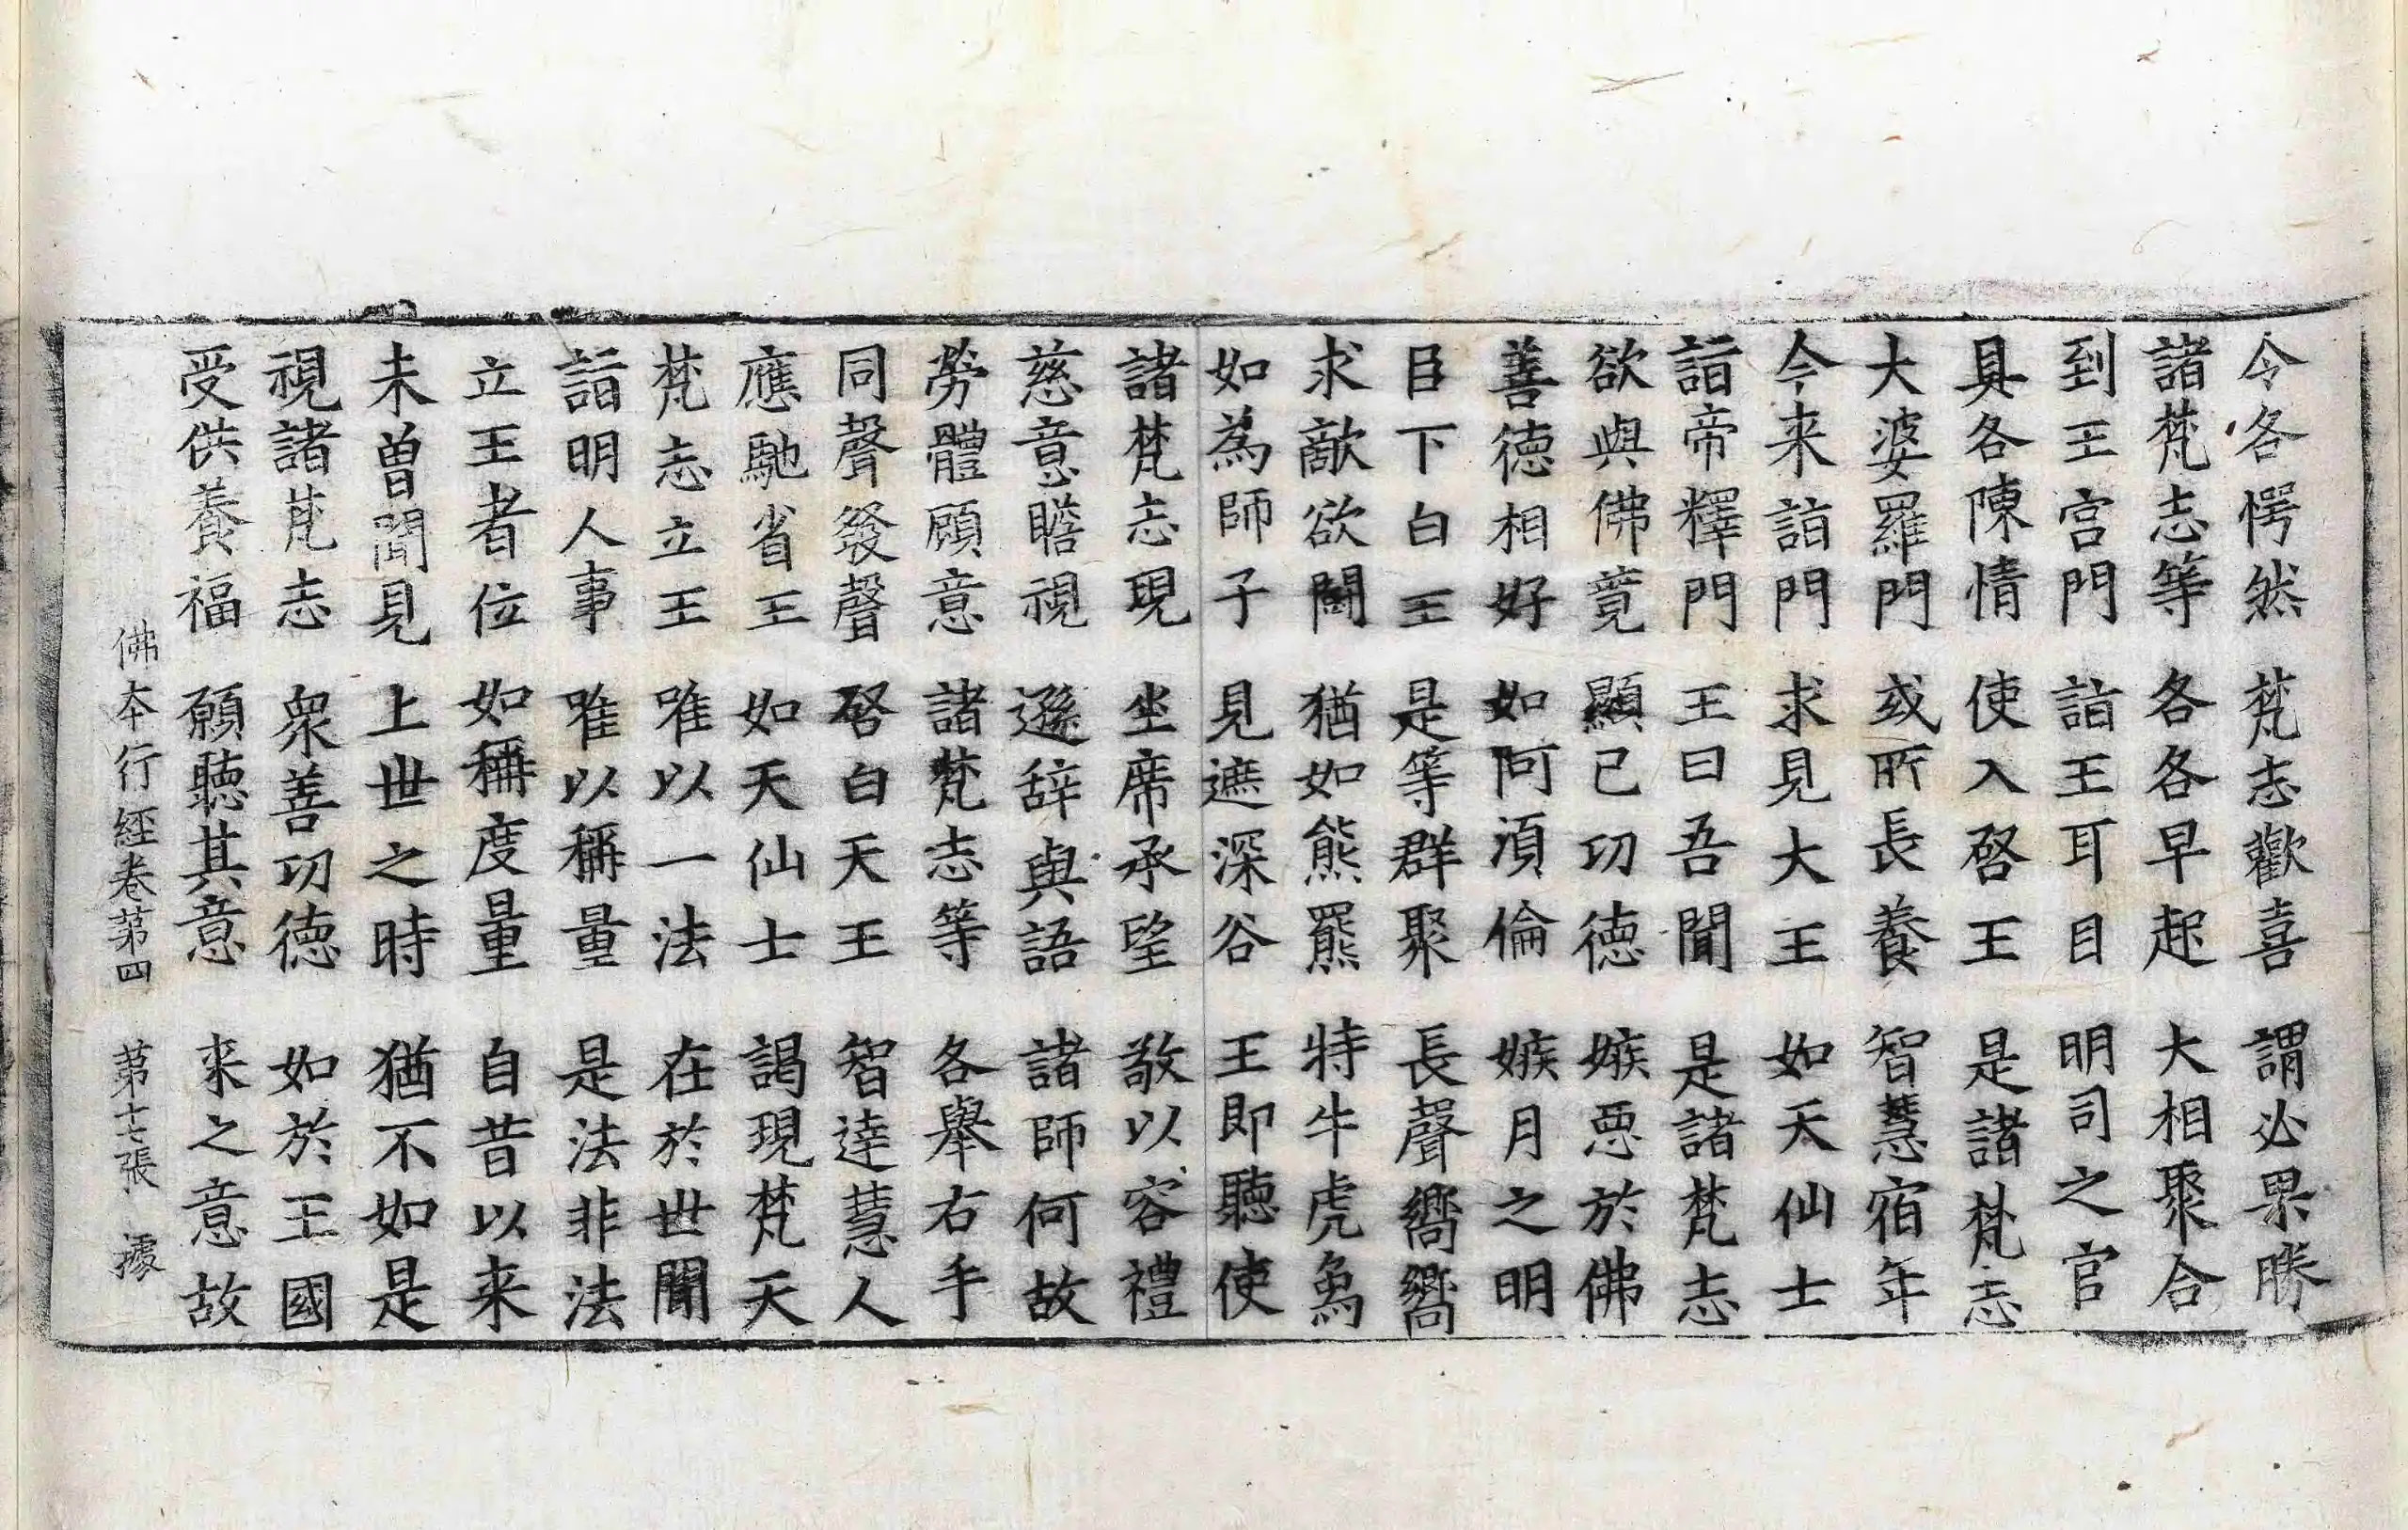 令各愕然　梵志歡喜　謂必果勝
諸梵志等　各各早起　大相聚合
到王宮門　詣王耳目　明司之官
具各陳情　使入啓王　是諸梵志
大婆羅門　或所長養　智慧宿年
今来詣門　求見大王　如天仙士
詣帝釋門　王曰吾聞　是諸梵志
欲與佛竟　顯己功德　嫉惡於佛
善德相好　如阿湏倫　嫉月之明
臣下白王　是等群聚　長聲嚮嚮
求敵欲鬪　猶如熊羆　特牛虎象
如為師子　見遮深谷　王即聽使
諸梵志現　坐席承望　敬以容禮
慈意瞻視　遜辞與語　諸師何故
勞體顧意　諸梵志等　各舉右手
同聲發聲　啓白天王　智達慧人
應馳省王　如天仙士　謁現梵天
梵志立王　唯以一法　在於世間
詣明人事　唯以稱量　是法非法
立王者位　如稱度量　自昔以来
未曽聞見　上世之時　猶不如是
視諸梵志　衆善功德　如於王國
受供養福　願聽其意　来之意故
佛本行經卷第四　第十七張　據